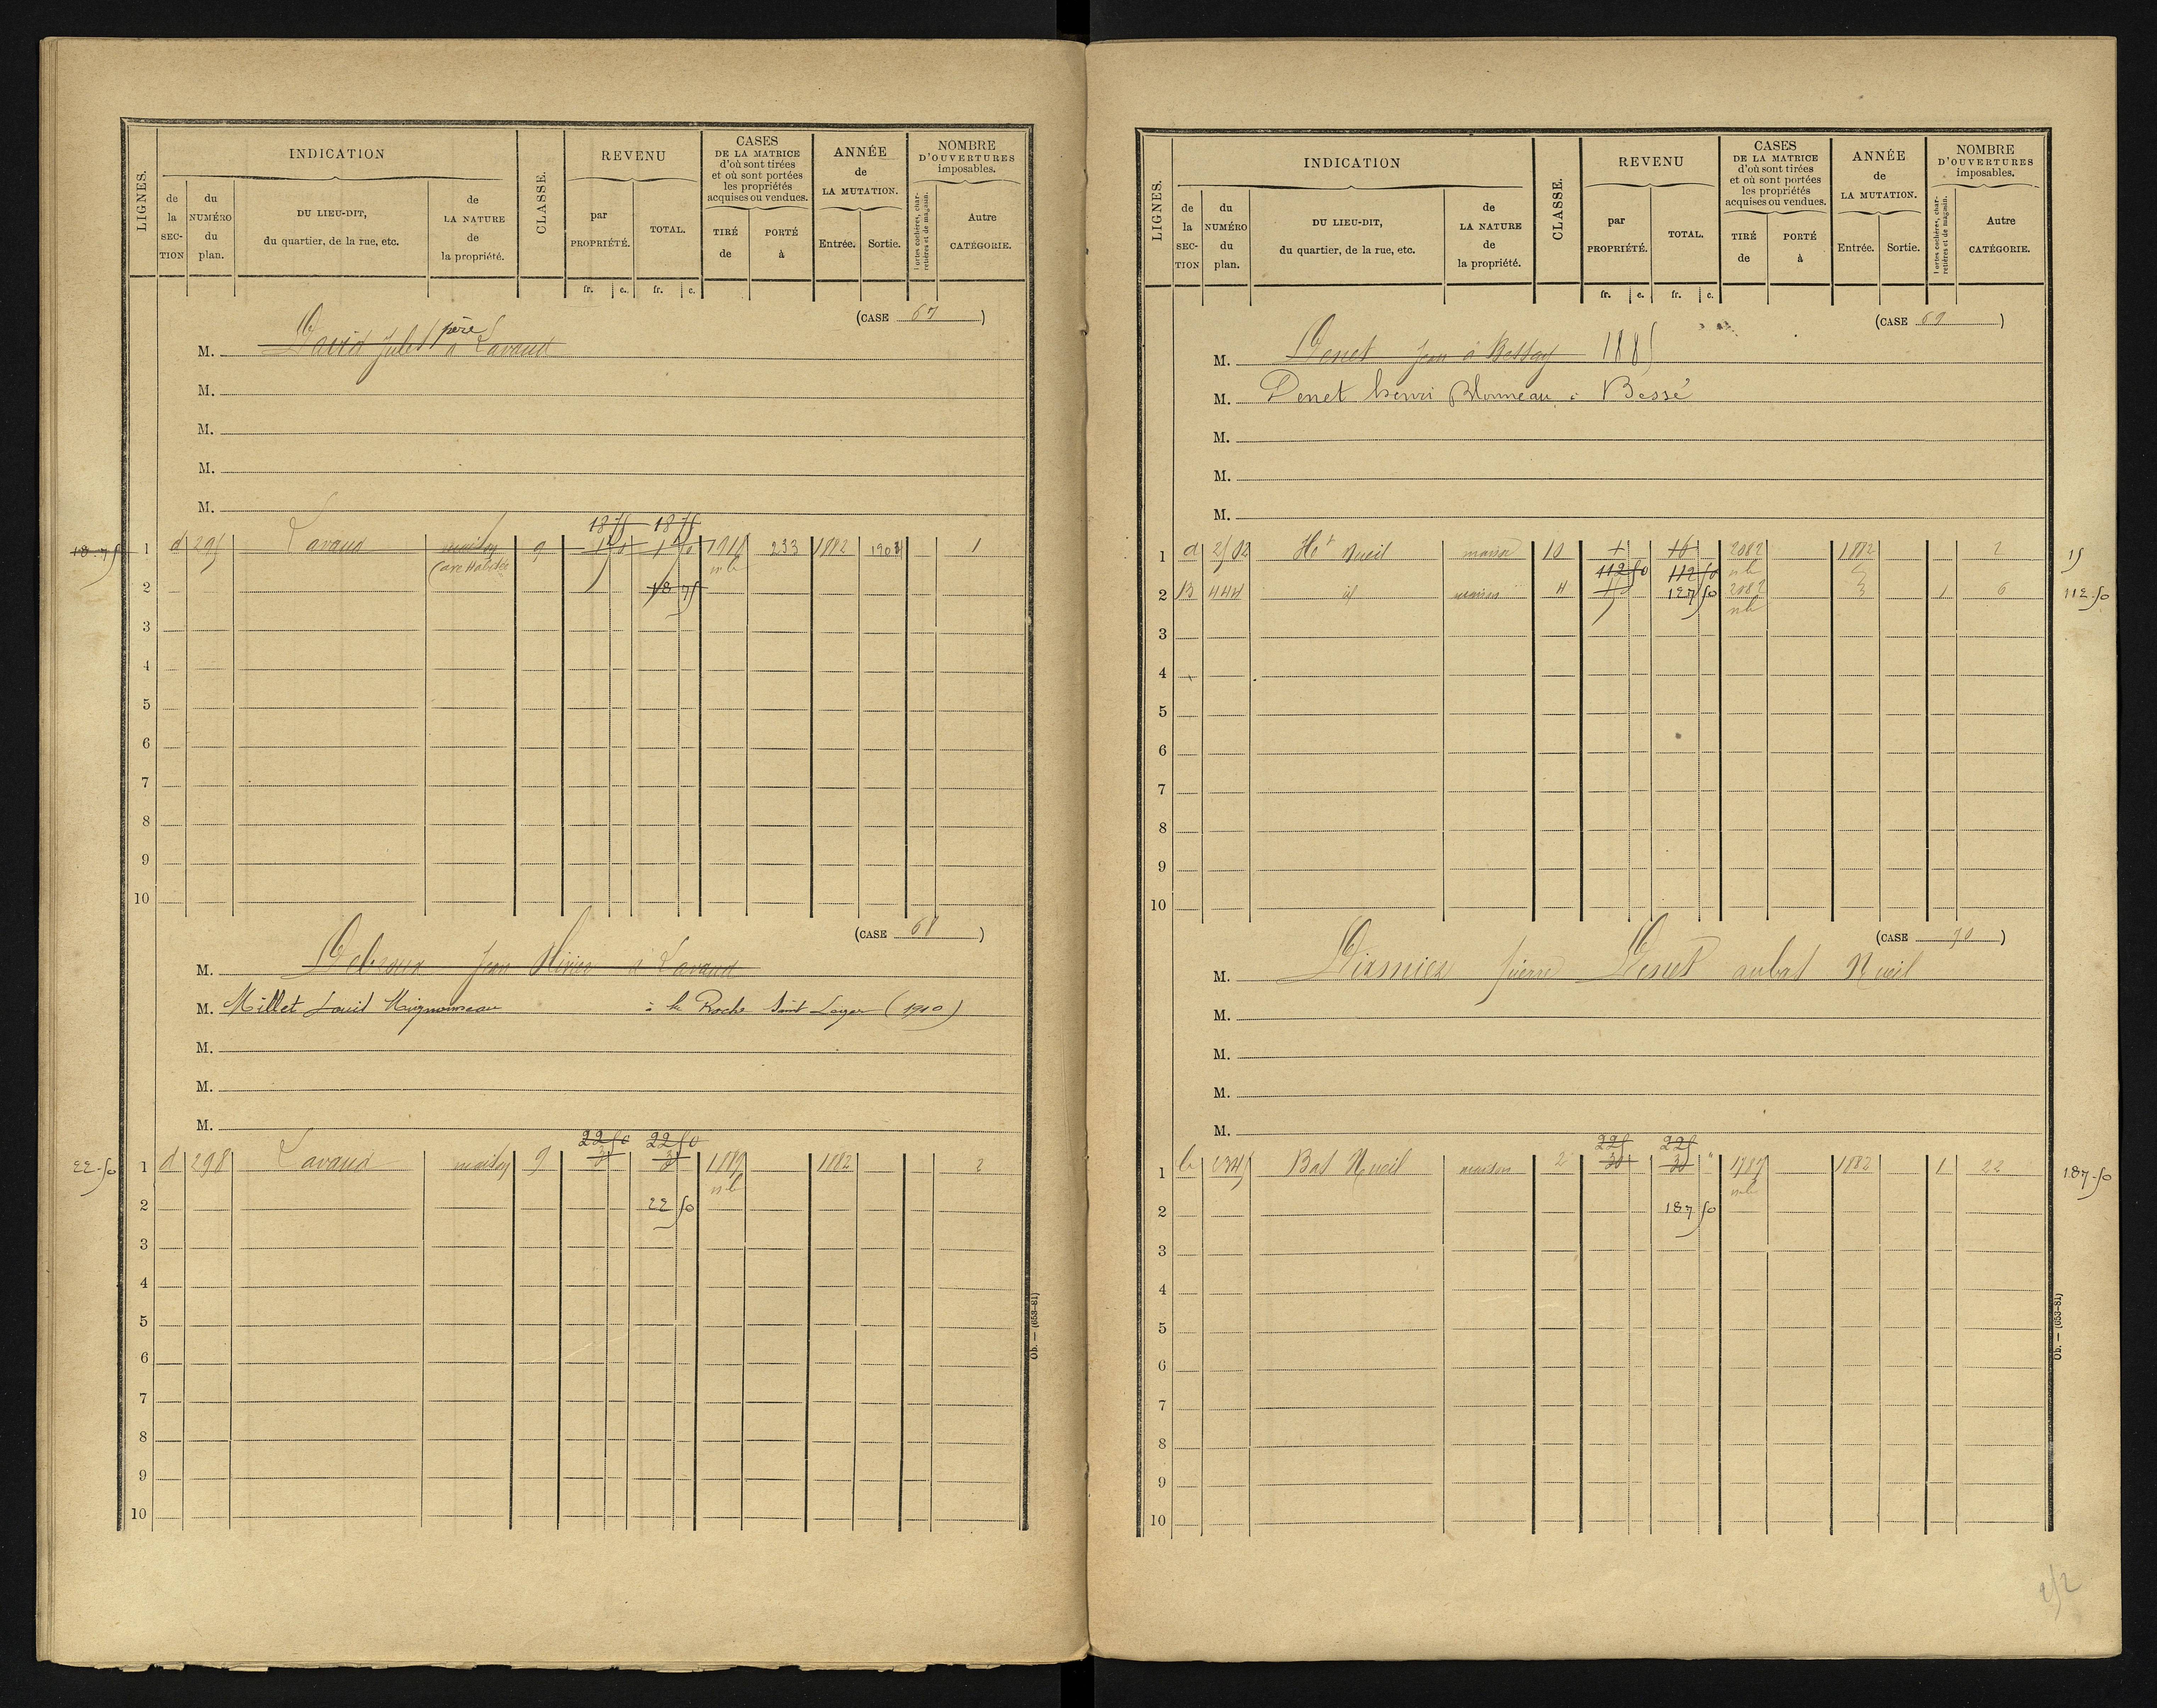 LIGNES.
INDICATION
de la SECTION
du NUMÉRO du plan.
DU LIEU-DIT, du quartier, de la rue, etc.
de LA NATURE de la propriété.
CLASSE.
REVENU
par PROPRIÉTÉ.
TOTAL.
fr. c. fr. c.
CASES
DE LA MATRICE
d'où sont tirées
et où sont portées
les propriétés
acquises ou vendues.
TIRÉ de
PORTÉ à
ANNÉE
de
LA MUTATION.
Entrée. Sortie.
NOMBRE
D'OUVERTURES
imposables.
Portes cochères, charretières et de magasin.
Autre CATÉGORIE.
(CASE 67)
M. David Jules père à Lavaud
M.
M.
M.
M.
18 75 18 75
18.75 1 d 295 Lavaud maison 9 1911 233 1882 1908 1
nb
2 18 75
3
4
5
6
7
8
9
10
(CASE 68)
M. Jean Olivier à Lavaud
M. Millet Louis à la Roche Saint Loyer (1910)
M.
M.
M.
22 50 22 50
22.50 1 d 298 Lavaud maison 9 1889 1882 2
nb
2 22 50
3
4
5
6
7
8
9
10
Ob. — (653-81)
LIGNES.
INDICATION
de la SECTION
du NUMÉRO du plan.
DU LIEU-DIT, du quartier, de la rue, etc.
de LA NATURE de la propriété.
CLASSE.
REVENU
par PROPRIÉTÉ.
TOTAL.
fr. c. fr. c.
CASES
DE LA MATRICE
d'où sont tirées
et où sont portées
les propriétés
acquises ou vendues.
TIRÉ de
PORTÉ à
ANNÉE
de
LA MUTATION.
Entrée. Sortie.
NOMBRE
D'OUVERTURES
imposables.
Portes cochères, charretières et de magasin.
Autre CATÉGORIE.
(CASE 69)
M. Denet Jean à Bessay 1885
M. Denet henri à Bessé
M.
M.
M.
1 d Ht Nueil maison 10 2082 1882 2 15
112 50 112 50 nb
2 B 444 id maison 4 127 50 2082 1 6 112.50
nb
3
4
5
6
7
8
9
10
(CASE 70)
M. pierre Denet au bas Nueil
M.
M.
M.
M.
225 225
1 b Bas Nueil maison 2 30 30 1787 1882 1 22 187.50
nb
2 187 50
3
4
5
6
7
8
9
10
Ob. — (653-81)